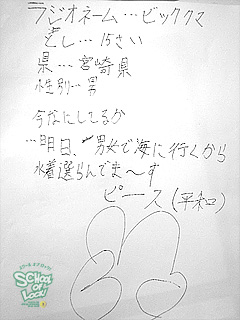 ラジオネーム…ビッククマ
とし…15さい
県…宮崎県
性別…男
今なにしてるか
…明日、男女で海に行くから
水着選らんでま～す
ピース(平和)
SCHOOL OF LOCK!